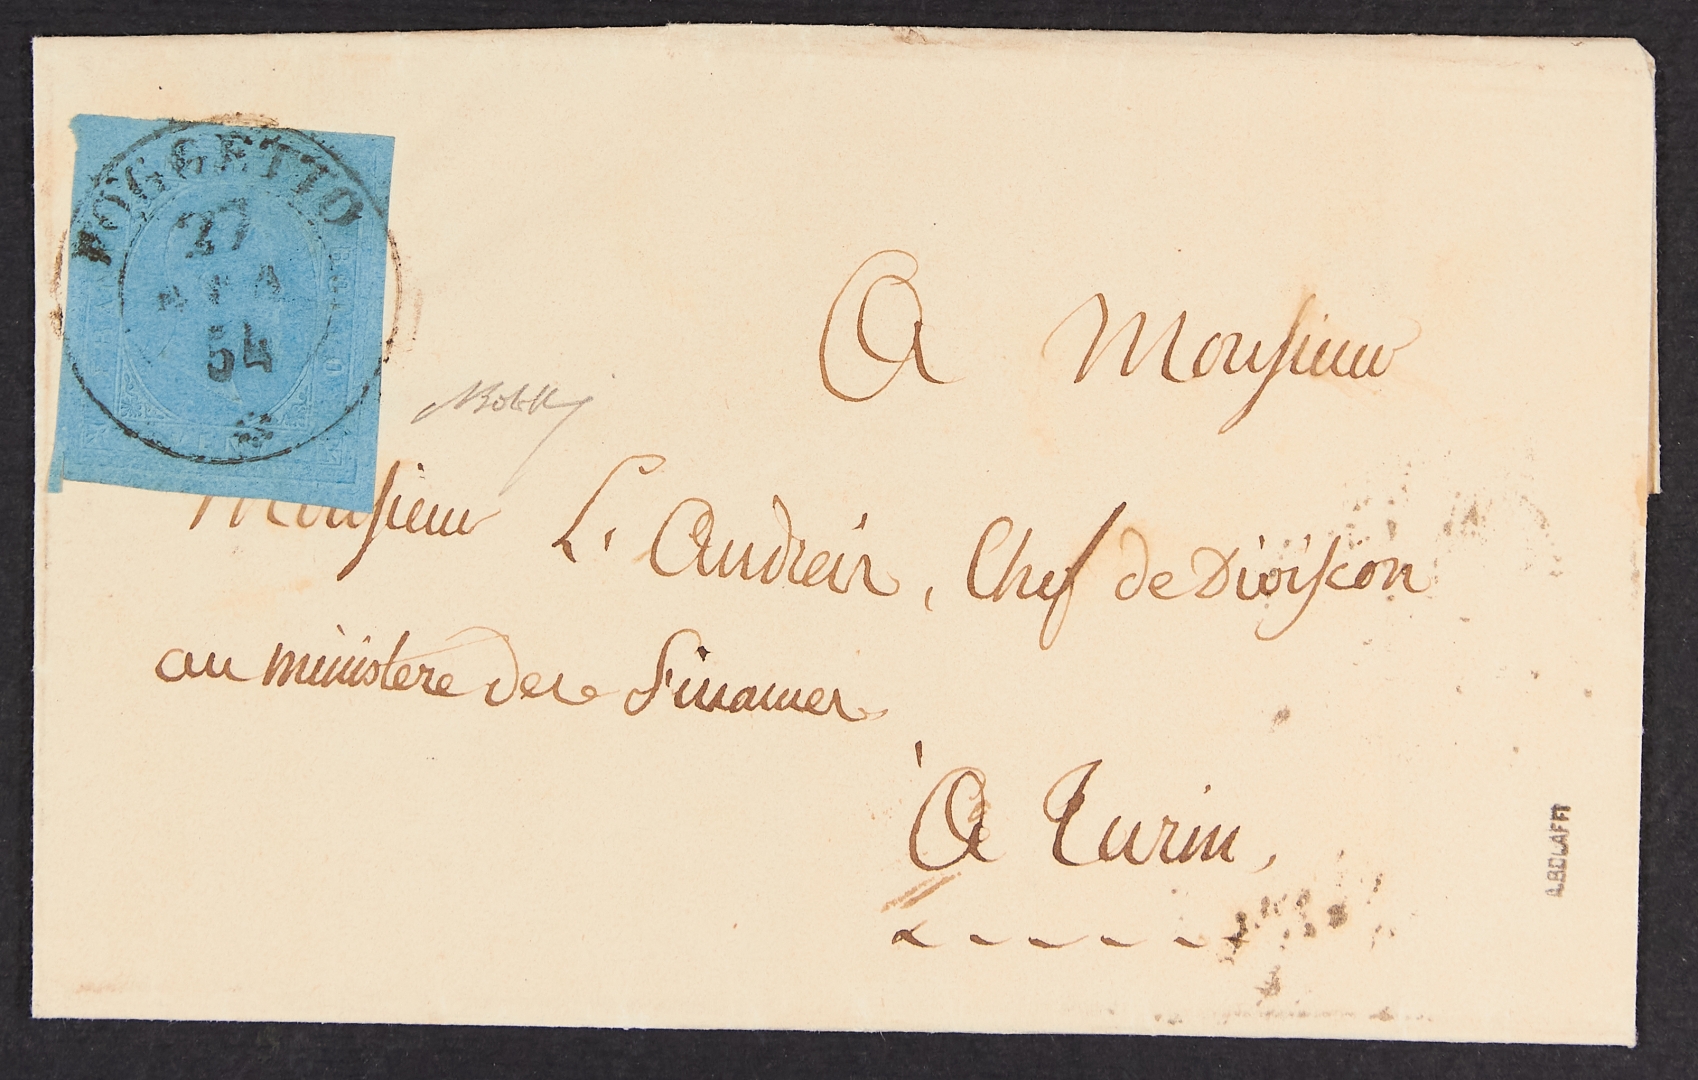 POGGETTO
27
54
BOLLO
A Monsieur
Monsieur L. Audreir, Chef de Division
au ministere de Finances
à Turin,
A.BOLAFFI